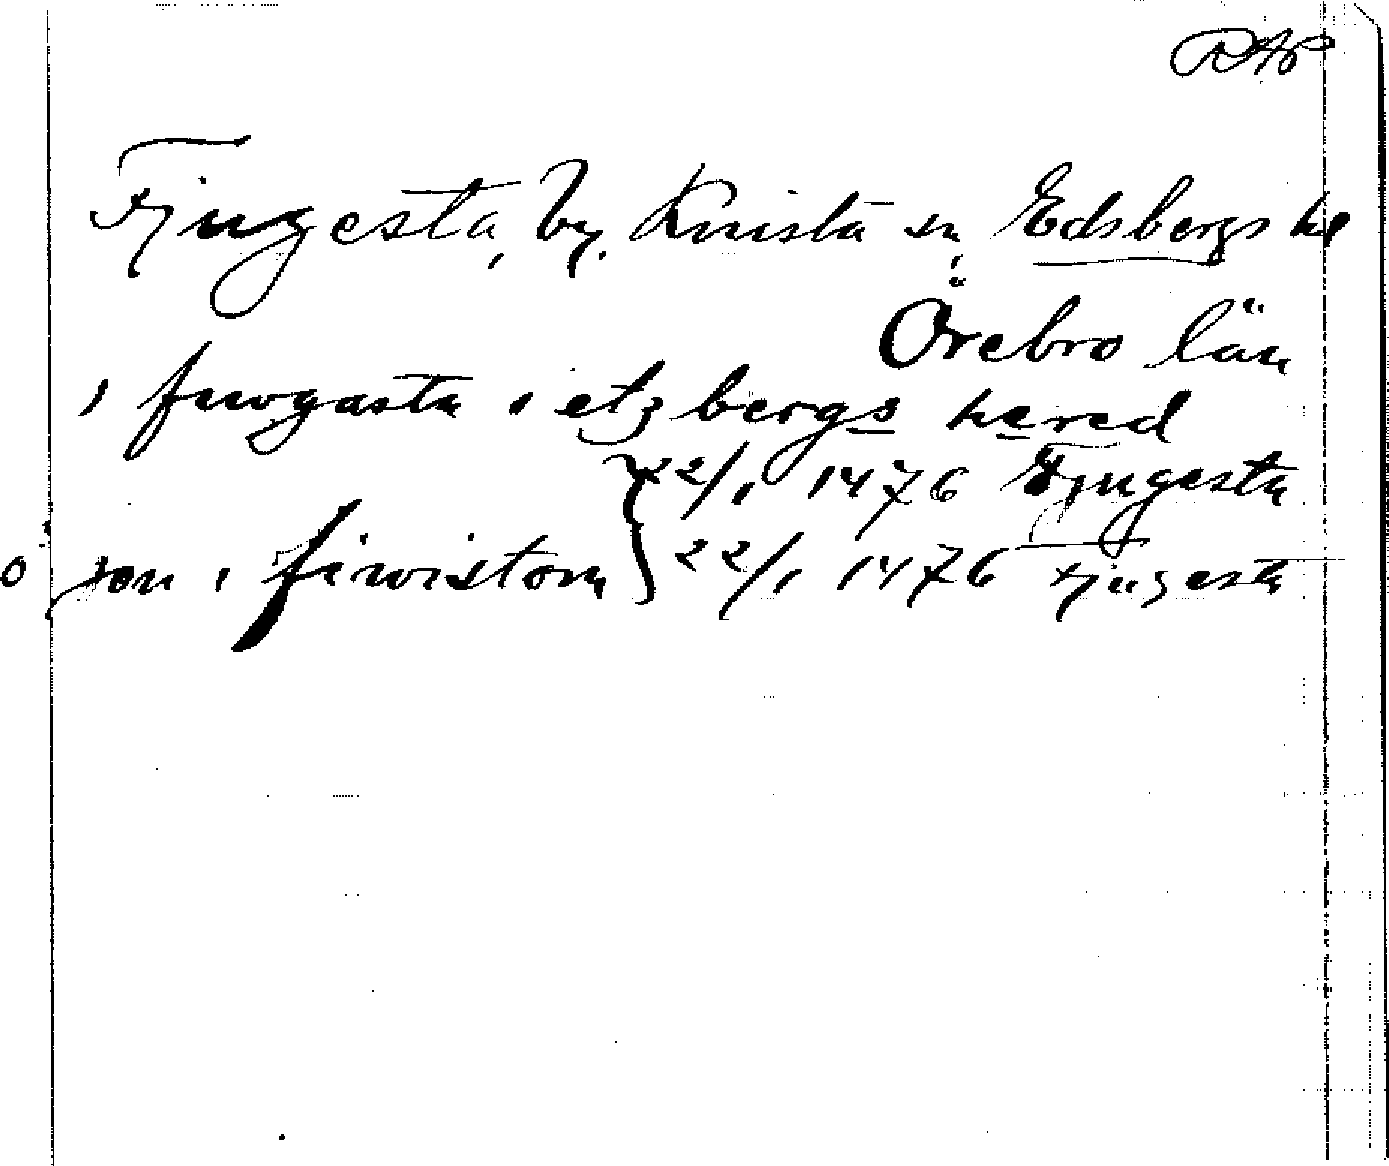 RAP
Fjugesta, by, Knista sn, Edsbergs hd
Örebro län
i fiwgasta i etzbergs hered
22/1 1476 Fjugesta
son i fiwistom } 22/1 1476 Fjugesta